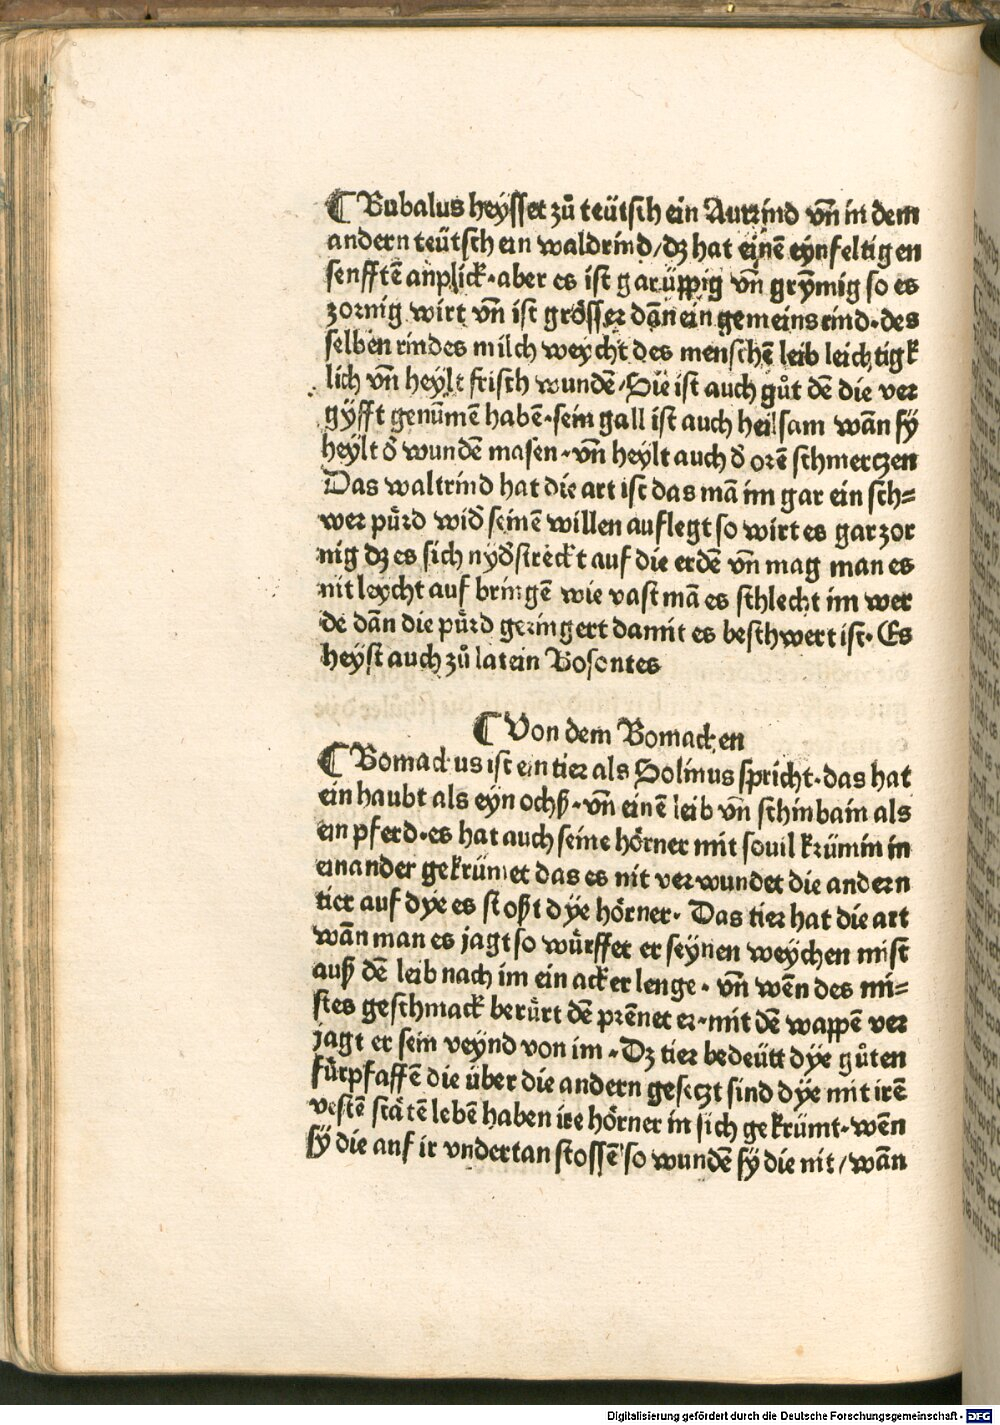 ¶ Bubalus heÿsset zů teütsch ein Aurrind vn̄ in dem
andern teütsch ein waldrind/dz hat einē eynfeltigen
senfftē anplick·aber es ist gar üppig vn̄ grȳmig so es
zornig wirt vn̄ ist grösser dān ein gemeins rind·des
selben rindes milch weycht des menschē leib leichtigk
lich vn̄ heylt frisch wundē/Sie ist auch gůt dē die ver
gÿfft genūmē habē·sein gall ist auch heilsam wān sÿ
heÿlt đ wundē masen·vn̄ heylt auch đ orē schmerczen
Das waltrind hat die art ist das mā im gar ein sch=
wer pürd wiđ seinē willen auflegt so wirt es gar zor
nig dz es sich nyđstreckt auf die erdē vn̄ mag man es
nit leycht auf bringē wie vast mā es schlecht im wer
de dān die pürd geringert damit es beschwert ist·Es
heyst auch zů latein Bosontes
¶ Von dem Bomacken
¶ Bomackus ist ein tier als Solinus spricht·das hat
ein haubt als eyn ochß·vn̄ einē leib vn̄ schinbain als
ein pferd·es hat auch seine hörner mit souil krümin in
einander gekrümet das es nit verwundet die andern
tier auf dÿe es stoßt dÿe hörner· Das tier hat die art
wān man es jagt so würffet er seÿnen weychen mist
auß dē leib nach im ein acker lenge· vn̄ wēn des mi=
stes geschmack berürt dē prēnet er·mit dē wappē ver
jagt er sein veynd von im·Dz tier bedeütt dÿe gůten
fürpfaffē die über die andern gesetzt sind dÿe mit irē
vestē stätē lebē haben ire hörner in sich gekrümt·wēn
sÿ die auf ir vndertan stossē so wundē sÿ die nit/wān
Digitalisierung gefördert durch die Deutsche Forschungsgemeinschaft - DFG